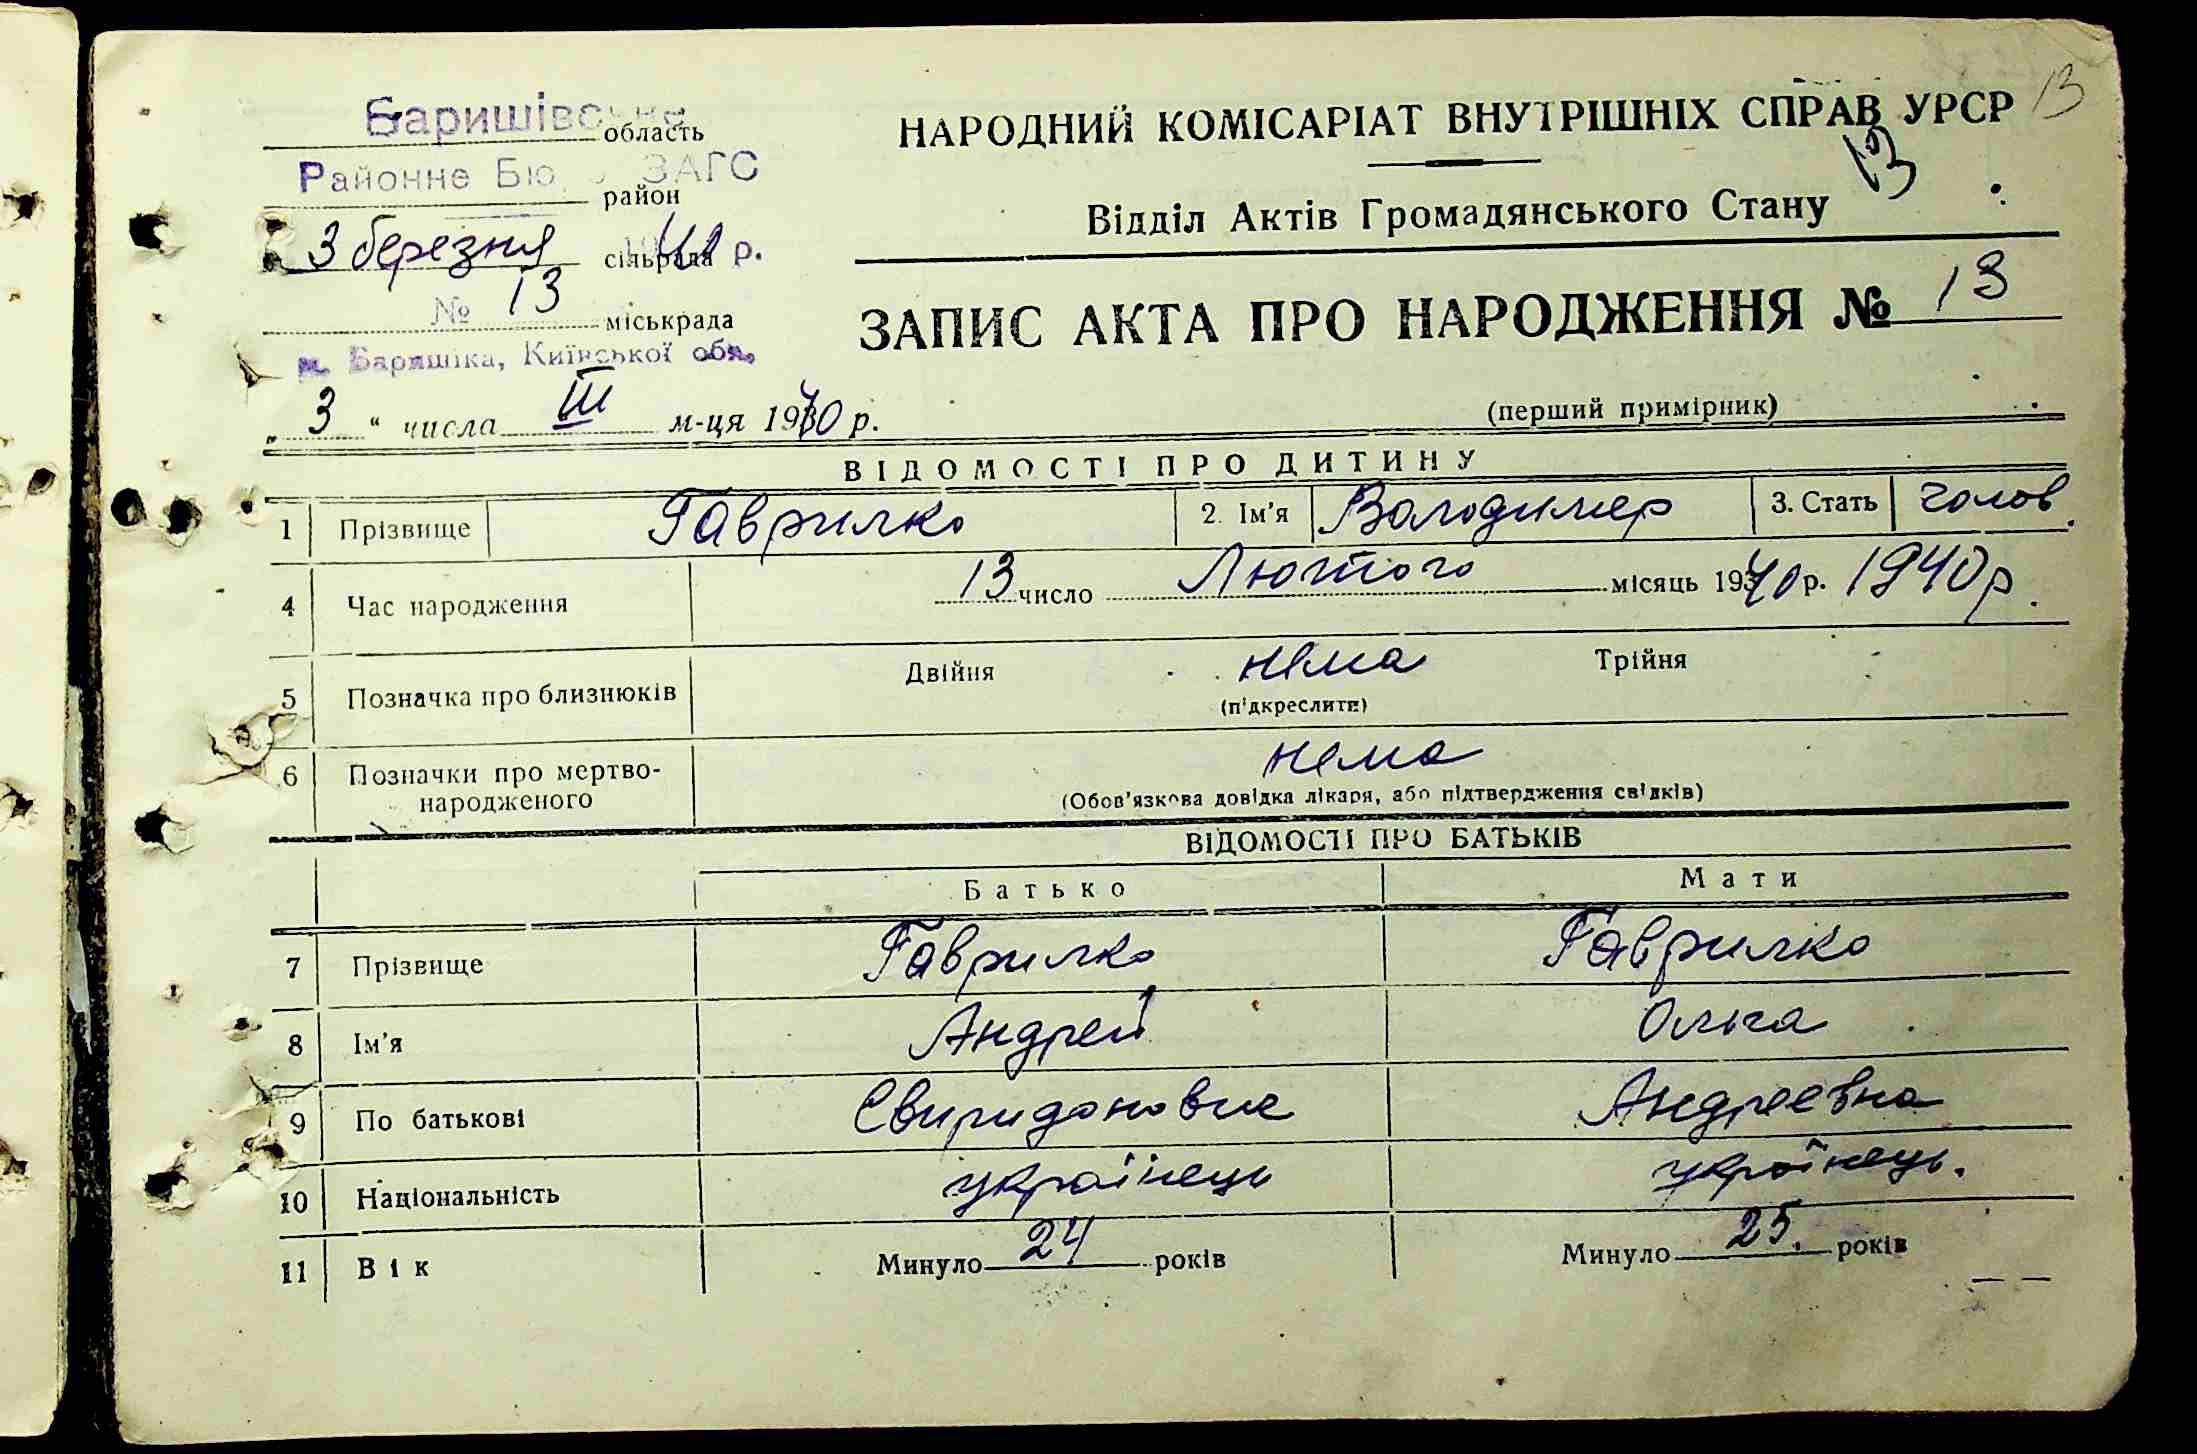 13
Баришівське область
Районне Бюро ЗАГС
район
3 березня сільрада 40 р.
№ 13 міськрада
м. Баришівка, Київської обл.
„ 3 " числа III м-ця 1940 р.
НАРОДНИЙ КОМІСАРІАТ ВНУТРІШНІХ СПРАВ УРСР
13
Відділ Актів Громадянського Стану
ЗАПИС АКТА ПРО НАРОДЖЕННЯ № 13
(перший примірник)
ВІДОМОСТІ ПРО ДИТИНУ
1 Прізвище Гаврилко 2. Ім'я Володимер 3. Стать чолов.
4 Час народження 13 число Лютого місяць 1940 р. 1940 р.
5 Позначка про близнюків Двійня нема Трійня
(підкреслити)
6 Позначки про мертво-
народженого
нема
(Обов'язкова довідка лікаря, або підтвердження свідків)
ВІДОМОСТІ ПРО БАТЬКІВ
Батько Мати
7 Прізвище Гаврилко Гаврилко
8 Ім'я Андрей Ольга
9 По батькові Свиридонович Андреевна
10 Національність українець українець.
11 Вік Минуло 24 років Минуло 25. років